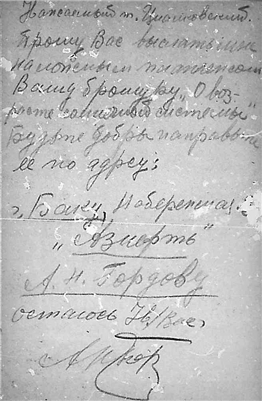 Уважаемый т. Циолковский.
Прошу Вас выслать мне
наложным платежом
Вашу брошуру „О воз-
расте солнечной системы"
Будьте добры направьте
ее по адресу:
г. Баку, Набережная.
„Азнефть"
А. Н. Гордову
остаюсь Ув/Вас.